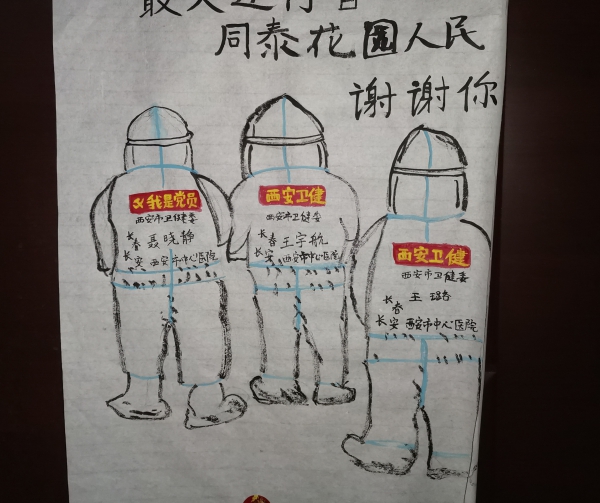 最美逆行者
同泰花园人民
谢谢你
我是党员
西安市卫健委
长春 聂晓静
长安 西安市中心医院
西安卫健
西安市卫健委
长春 王宇航
长安 西安市中心医院
西安卫健
西安市卫健委
王 璐
长春
长安 西安市中心医院